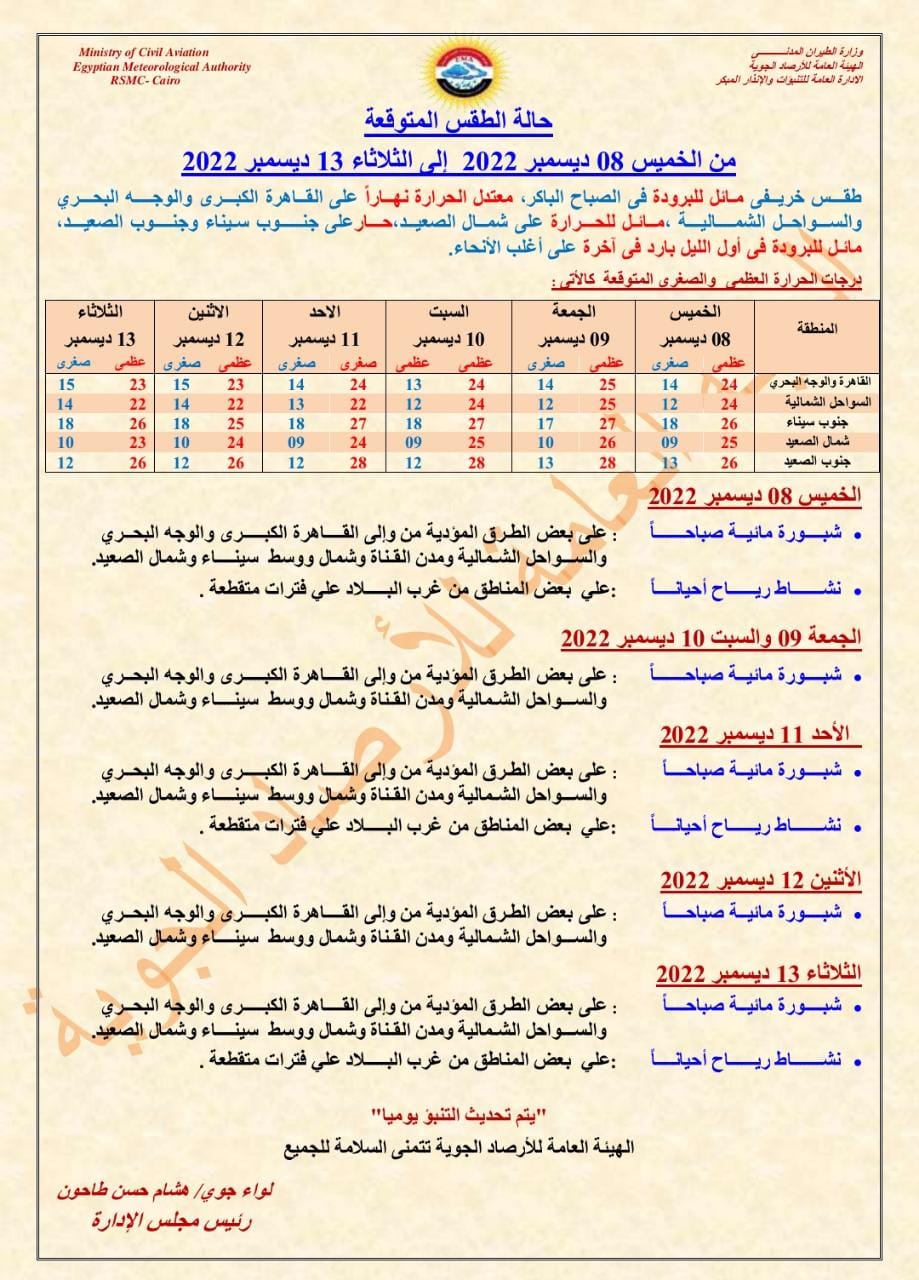 Ministry of Civil Aviation
Egyptian Meteorological Authority
RSMC- Cairo
وزارة الطيران المدنـــــــى
الهيئة العامة للأرصاد الجوية
الادارة العامة للتنبؤات والإنذار المبكر
EMA
حالة الطقس المتوقعة
من الخميس 08 ديسمبر 2022 إلى الثلاثاء 13 ديسمبر 2022
طقـس خريـفى مـائل للبرودة فى الصباح الباكر، معتدل الحرارة نهـاراً على القـاهرة الكبـرى والوجـه البحـري
والسـواحـل الشمـاليـة ،مـائـل للحـرارة على شمـال الصعيـد،حـار على جنـوب سيناء وجنـوب الصعيـد،
مائـل للبرودة فى أول الليل بارد فى آخرة على أغلب الأنحاء.
درجات الحرارة العظمى والصغرى المتوقعة كالأتى :
المنطقة الخميس الجمعة السبت الاحد الاثنين الثلاثاء
08 ديسمبر 09 ديسمبر 10 ديسمبر 11 ديسمبر 12 ديسمبر 13 ديسمبر
عظمى صغرى عظمى صغرى عظمى عظمى صغرى صغرى عظمى صغرى عظمى صغرى
القاهرة والوجه البحري 24 14 25 14 24 13 24 14 23 15 23 15
السواحل الشمالية 24 12 25 12 24 12 22 13 22 14 22 14
جنوب سيناء 26 18 27 17 27 18 27 18 25 18 26 18
شمال الصعيد 25 09 26 10 25 09 24 09 24 10 23 10
جنوب الصعيد 26 13 28 13 28 12 28 12 26 12 26 12
الخميس 08 ديسمبر 2022
• شبـــورة مائيــة صباحـــــاً : على بعض الطرق المؤدية من وإلى القـــاهرة الكبـــرى والوجه البحـري
والســـواحل الشمالية ومدن القناة وشمال ووسط سينـــاء وشمال الصعيد.
• نشـــاط ريـــاح أحيانـــــاً :علي بعض المناطق من غرب البـــلاد علي فترات متقطعة .
الجمعة 09 والسبت 10 ديسمبر 2022
• شبـــورة مائيــة صباحـــــاً : على بعض الطرق المؤدية من وإلى القـــاهرة الكبـــرى والوجه البحـري
والســـواحل الشمالية ومدن القناة وشمال ووسط سينـــاء وشمال الصعيد.
الأحد 11 ديسمبر 2022
• شبـــورة مائيــة صباحـــــاً : على بعض الطرق المؤدية من وإلى القـــاهرة الكبـــرى والوجه البحـري
والســـواحل الشمالية ومدن القناة وشمال ووسط سينـــاء وشمال الصعيد.
• نشـــاط ريـــاح أحيانـــــاً :علي بعض المناطق من غرب البـــلاد علي فترات متقطعة .
الأثنين 12 ديسمبر 2022
• شبـــورة مائيــة صباحـــــاً : على بعض الطرق المؤدية من وإلى القـــاهرة الكبـــرى والوجه البحـري
والســـواحل الشمالية ومدن القناة وشمال ووسط سينـــاء وشمال الصعيد.
الثلاثاء 13 ديسمبر 2022
• شبـــورة مائيــة صباحـــــاً : على بعض الطرق المؤدية من وإلى القـــاهرة الكبـــرى والوجه البحـري
والســـواحل الشمالية ومدن القناة وشمال ووسط سينـــاء وشمال الصعيد.
• نشـــاط ريـــاح أحيانـــــاً :علي بعض المناطق من غرب البـــلاد علي فترات متقطعة .
"يتم تحديث التنبؤ يوميا"
الهيئة العامة للأرصاد الجوية تتمنى السلامة للجميع
لواء جوي/ هشام حسن طاحون
رئيس مجلس الإدارة
الهيئة العامة للأرصاد الجوية